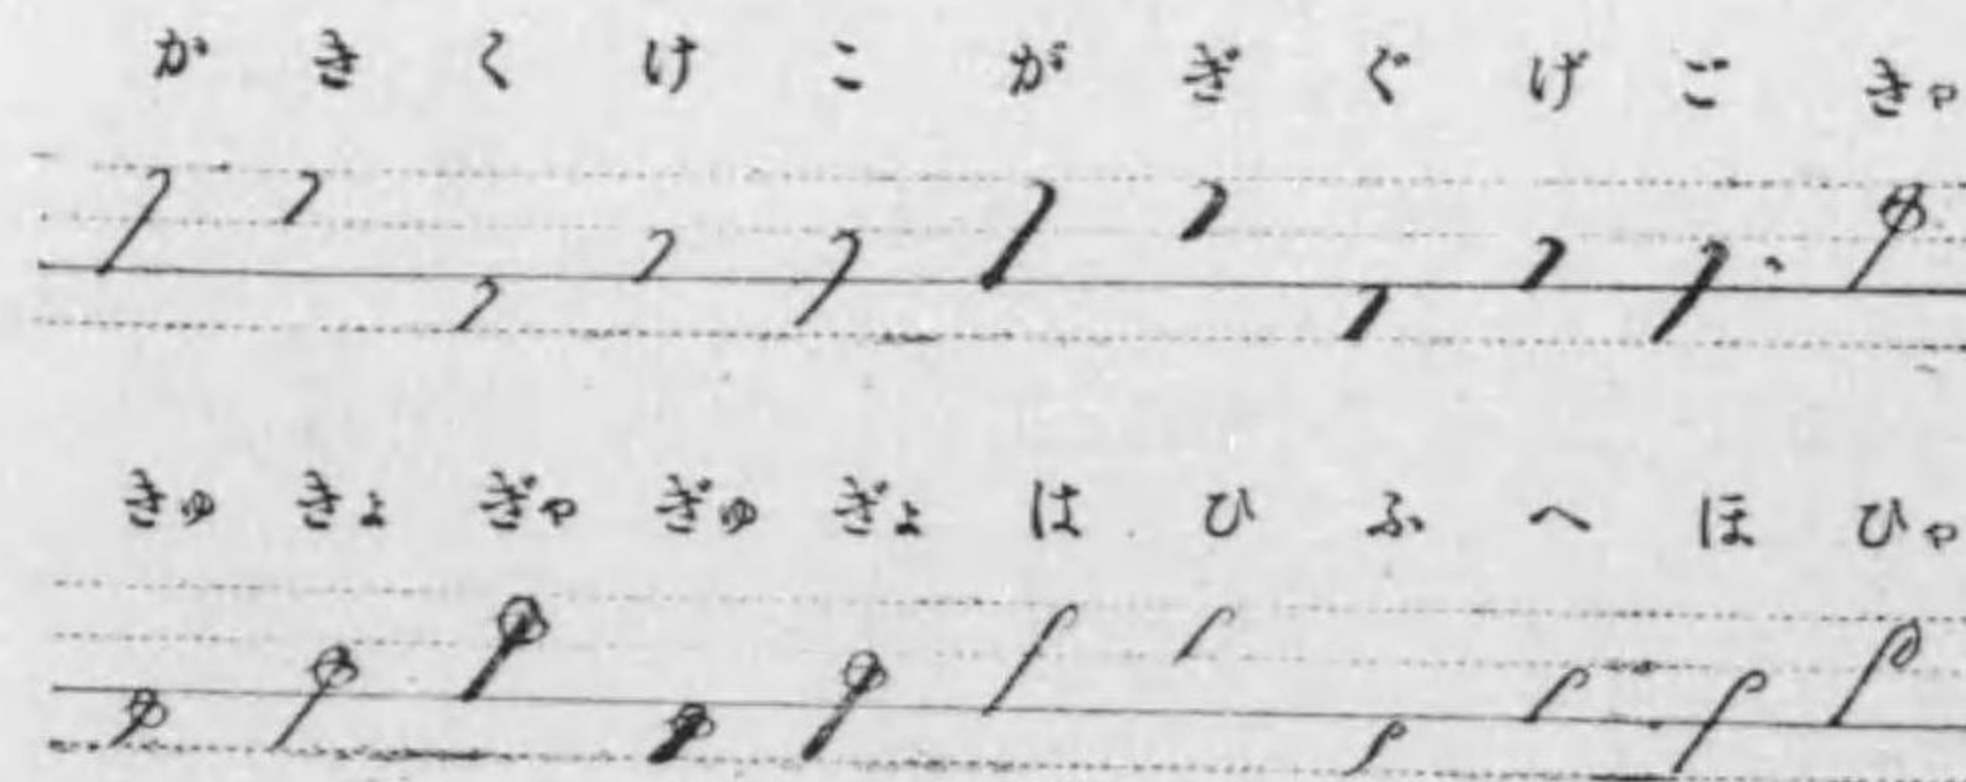 か き く け こ が ぎ ぐ げ ご きゃ
きゅ きょ ぎゃ ぎゅ ぎょ は ひ ふ へ ほ ひゃ